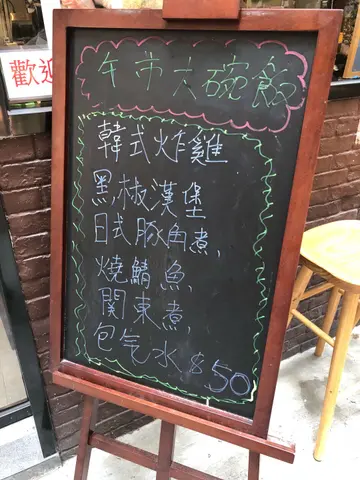 歡迎
午市大碗飯
韓式炸雞
黑椒漢堡
日式豚角煮,
燒鯖魚,
關東煮,
包气水 $50